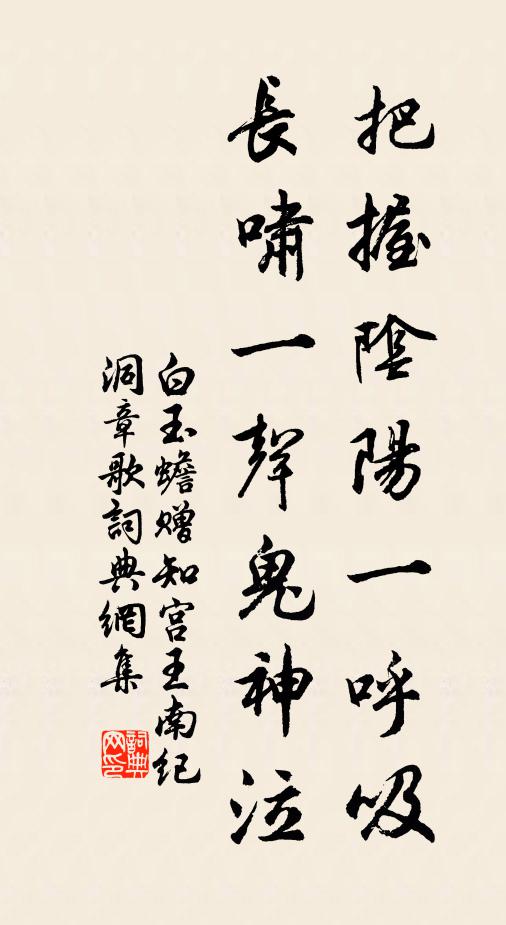 把握陰陽一呼吸
長嘯一聲鬼神泣
白玉蟾贈知宮王南紀
洞章歌詞典網集
詞典
网印